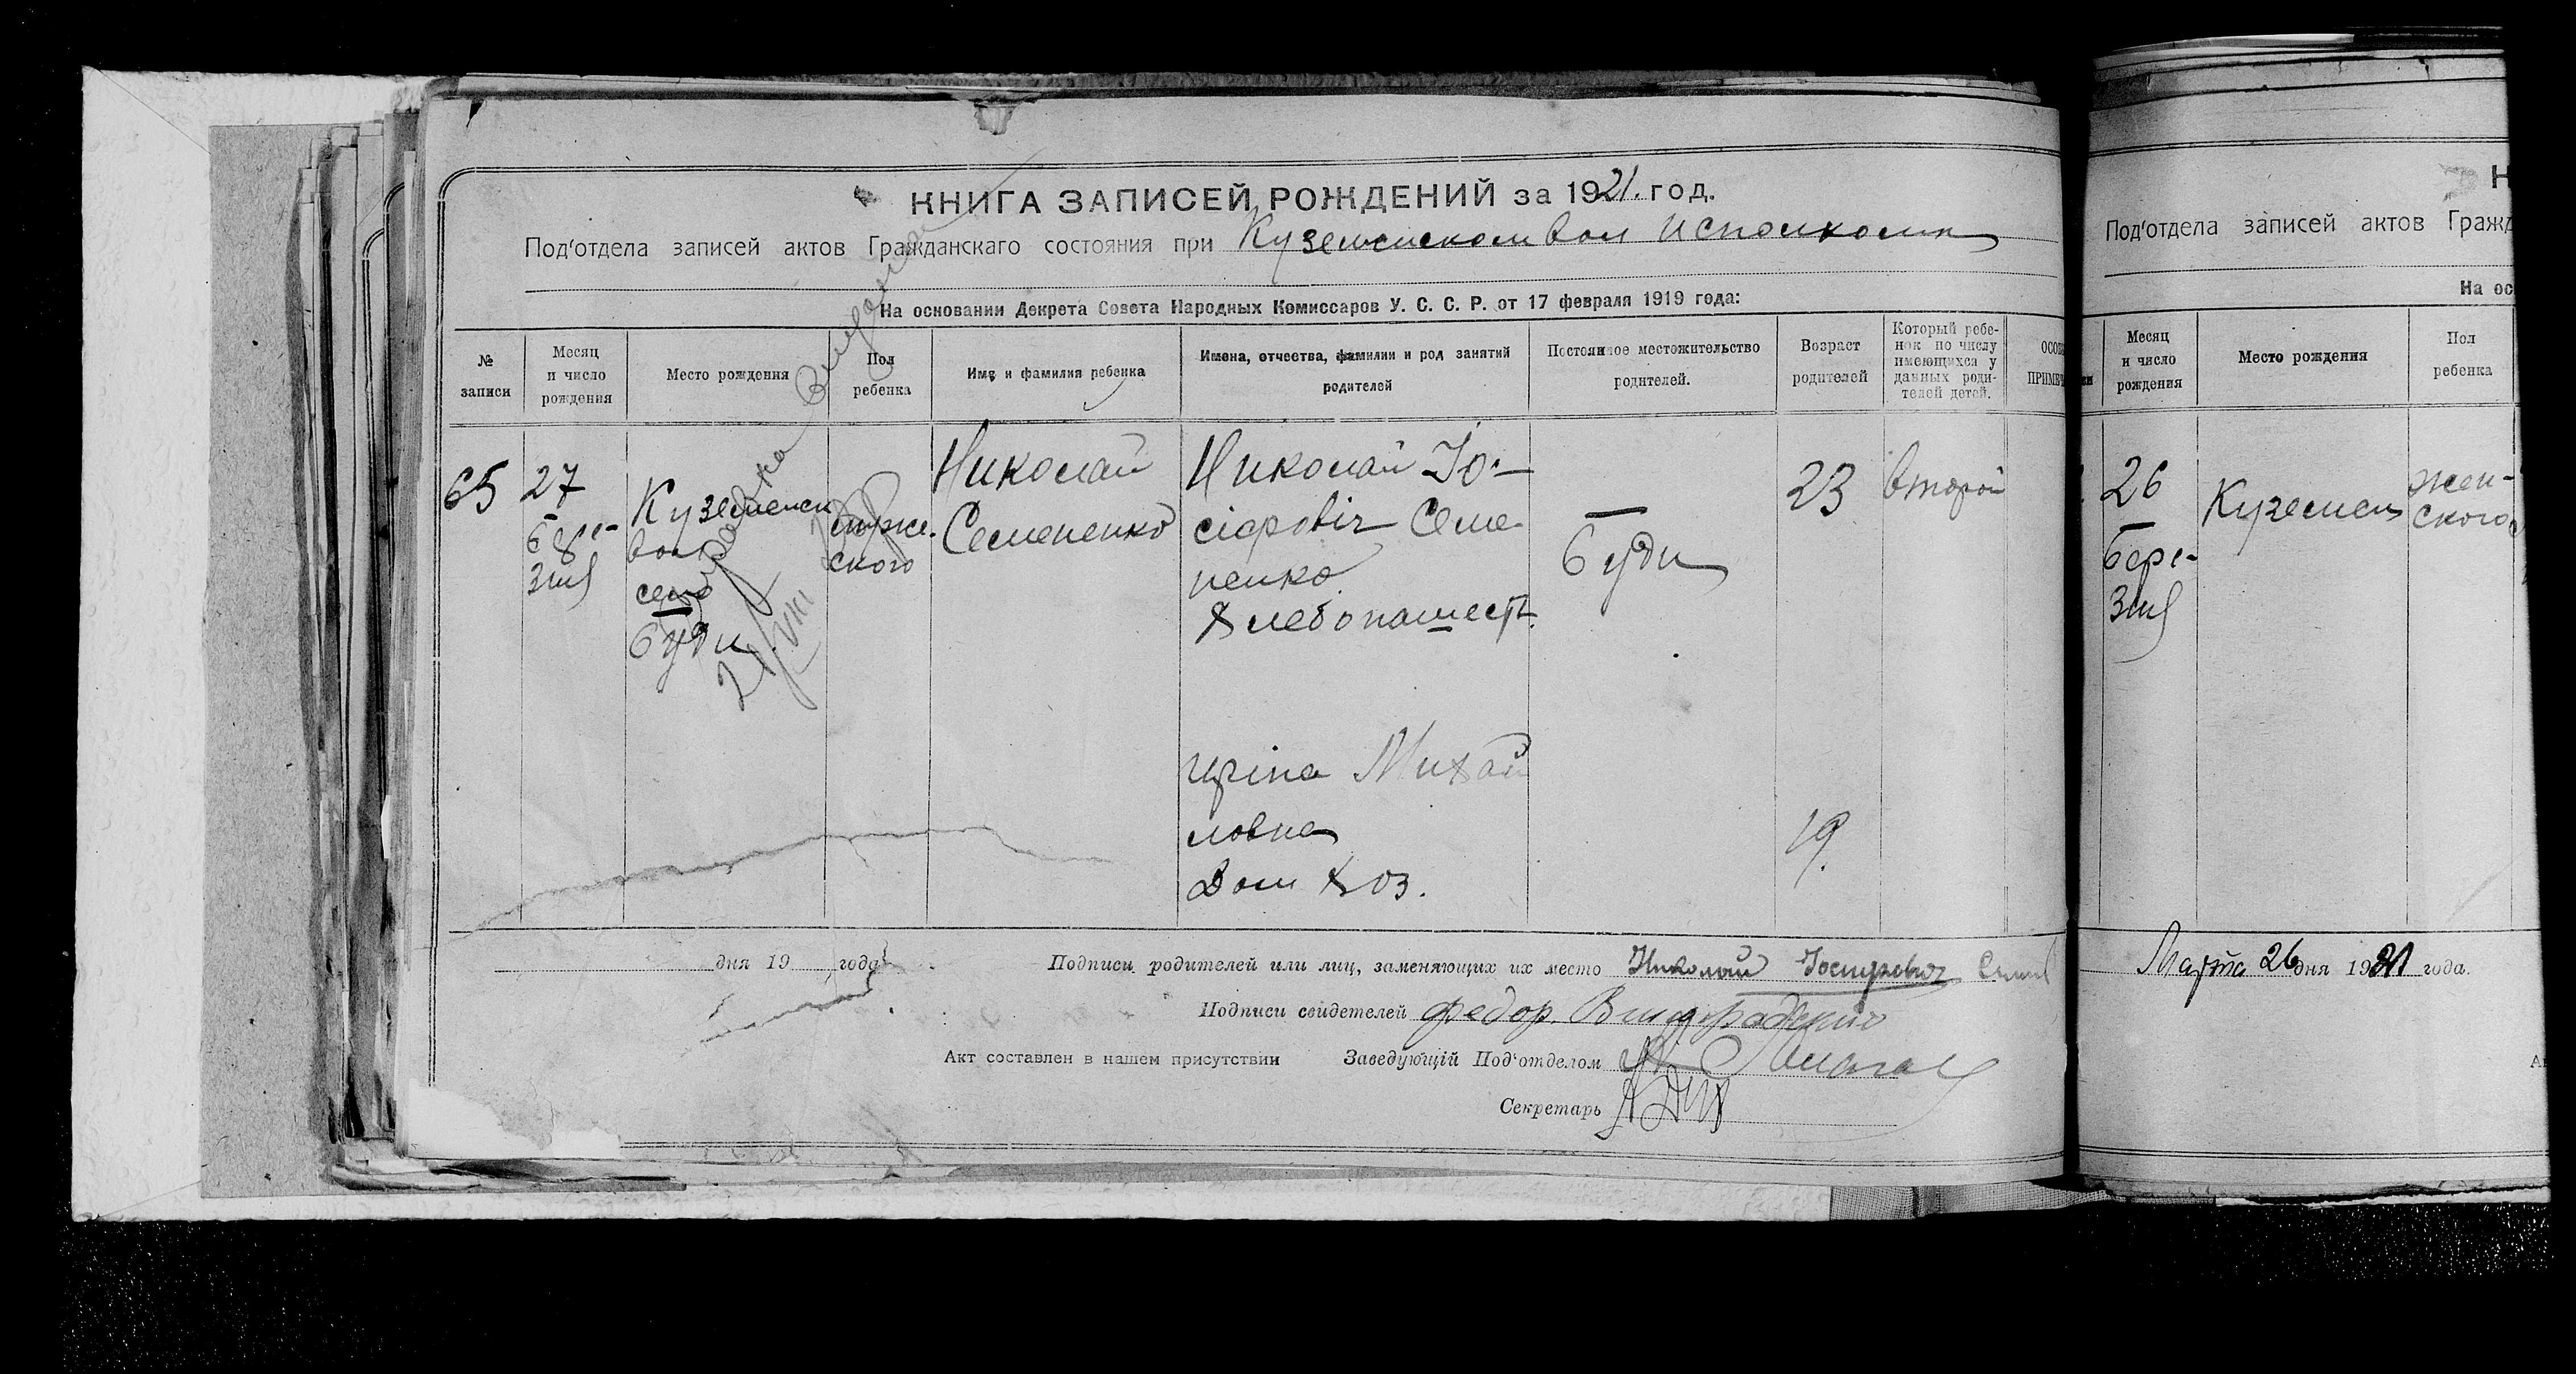 КНИГА ЗАПИСЕЙ РОЖДЕНИЙ за 1921. год.
Под'отдела записей актов Гражданскаго состояния при Куземенском вол исполкоми
На основании Декрета Совета Народных Комиссаров У. С. С. Р. от 17 февраля 1919 года:
№ записи
Месяц и число рождения
Место рождения
Пол ребенка
Имя и фамилия ребенка
Имена, отчества, фамилии и род занятий родителей
Постоянное местожительство родителей.
Возраст родителей
Который ребе-
нок по числу
имеющихся у
данных роди-
телей детей.
65
27
бере-
зня
Куземенск
вол
село
Буди
муже.
ского
Николай
Семененко
Николай Іо-
сіфовіч Семе
ненко
Хлебопашест.
Буди
23
второй
Иріна Михай
ловна
Дом хоз.
19.
дня 19 года
Подписи родителей или лиц, заменяющих их место Николай Іосифович
Подписи свидетелей Федор
Акт составлен в нашем присутствии Заведующій Под'отделом
Секретарь
Под'отдела записей актов Гражд
На ос
Месяц
и число
рождения
Место рождения
Пол
ребенка
26
бере-
зня
Куземен
жен-
ского
Марта 26 дня 1921 года.